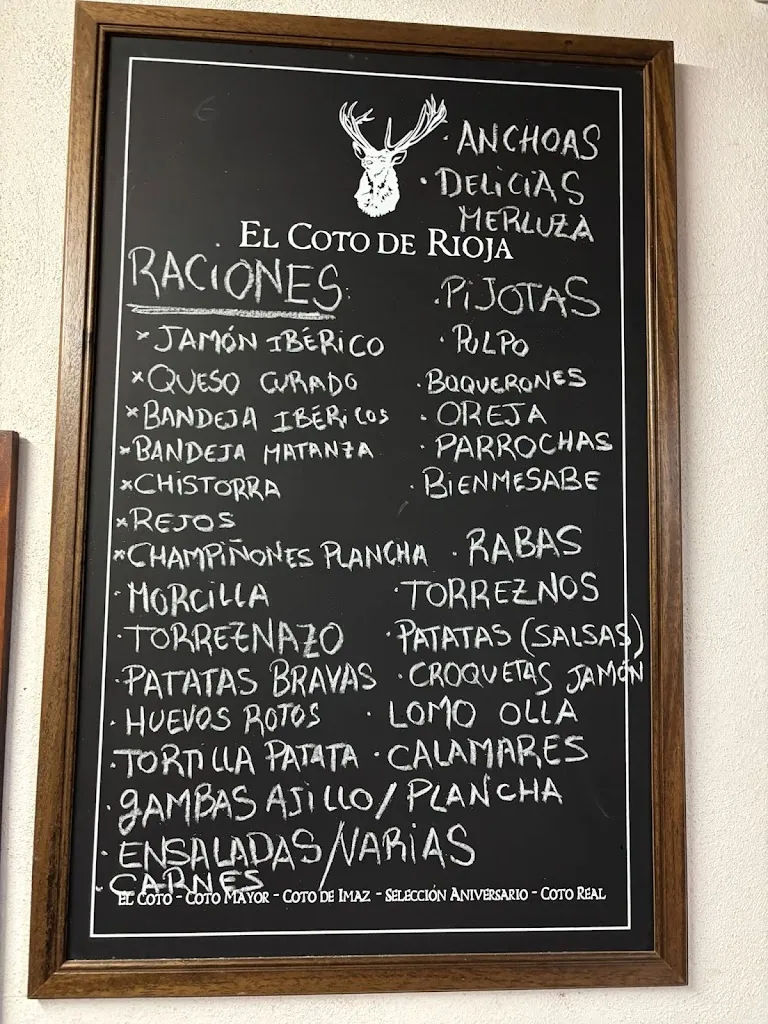 · ANCHOAS
· DELICIAS
MERLUZA
EL COTO DE RIOJA
RACIONES
· PIJOTAS
× JAMÓN IBÉRICO
· PULPO
× QUESO CURADO
· BOQUERONES
× BANDEJA IBÉRICOS
· OREJA
× BANDEJA MATANZA
· PARROCHAS
× CHISTORRA
· BIENMESABE
× REJOS
× CHAMPIÑONES PLANCHA
· RABAS
· MORCILLA
· TORREZNOS
· TORREZNAZO
· PATATAS (SALSAS)
· PATATAS BRAVAS
· CROQUETAS JAMÓN
· HUEVOS ROTOS
· LOMO OLLA
· TORTILLA PATATA
· CALAMARES
· GAMBAS AJILLO/PLANCHA
· ENSALADAS/VARIAS
· CARNES
EL COTO - COTO MAYOR - COTO DE IMAZ - SELECCIÓN ANIVERSARIO - COTO REAL